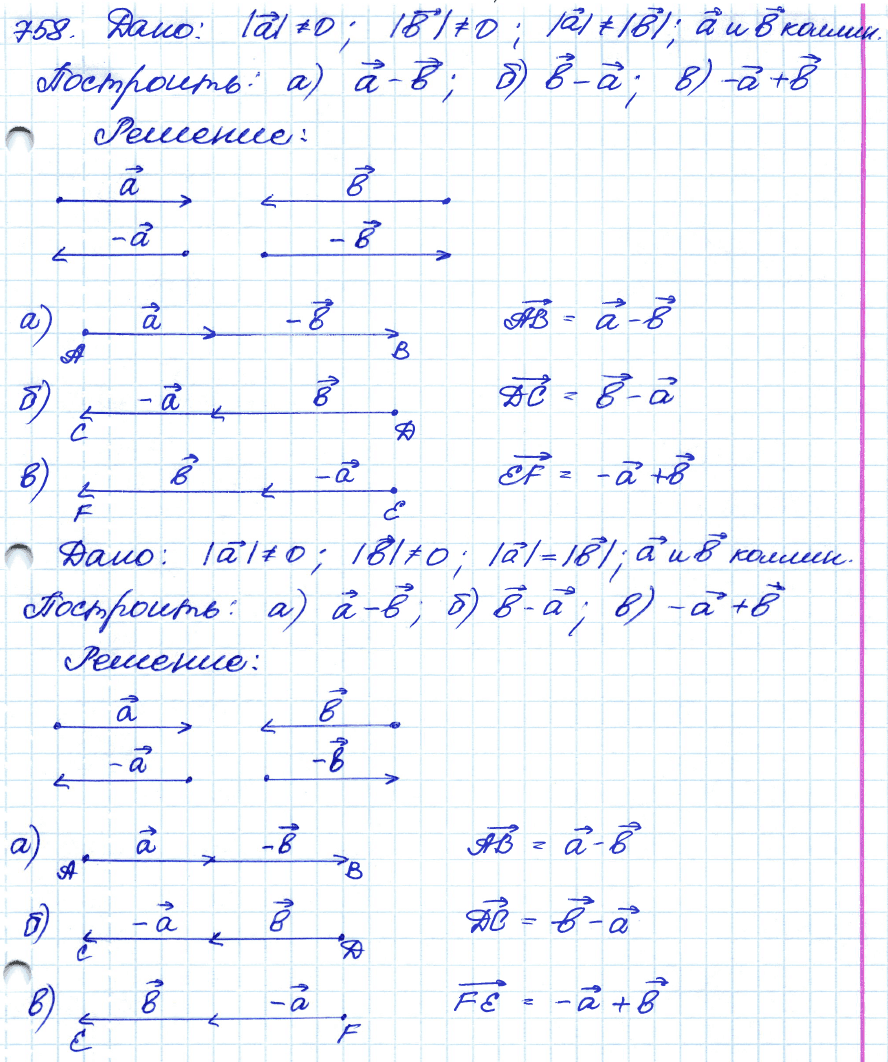 758. Дано: |a⃗| ≠ 0; |b⃗| ≠ 0; |a⃗| ≠ |b⃗|; a⃗ и b⃗ коллин.
Построить: а) a⃗ - b⃗; б) b⃗ - a⃗; в) -a⃗ + b⃗
Решение:
a⃗ b⃗
-a⃗ -b⃗
а) a⃗ -b⃗ AB⃗ = a⃗ - b⃗
A B
б) -a⃗ b⃗ DC⃗ = b⃗ - a⃗
C D
в) b⃗ -a⃗ EF⃗ = -a⃗ + b⃗
F E
Дано: |a⃗| ≠ 0; |b⃗| ≠ 0; |a⃗| = |b⃗|; a⃗ и b⃗ коллин.
Построить: а) a⃗ - b⃗; б) b⃗ - a⃗; в) -a⃗ + b⃗
Решение:
a⃗ b⃗
-a⃗ -b⃗
а) a⃗ -b⃗ AB⃗ = a⃗ - b⃗
A B
б) -a⃗ b⃗ DC⃗ = b⃗ - a⃗
C D
в) b⃗ -a⃗ FE⃗ = -a⃗ + b⃗
E F